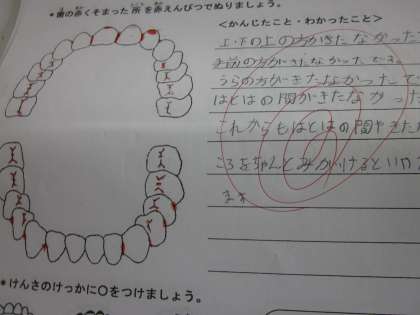 ＊歯の赤くそまった所を赤えんぴつでぬりましょう。
＜かんじたこと・わかったこと＞
上下の上の方がきたなかった
うらの方がきたなかった
はとはの間がきたなかった
これからもはとはの間やきた
ころをちゃんとみがけるといい
ます
＊けんさのけっかに○をつけましょう。